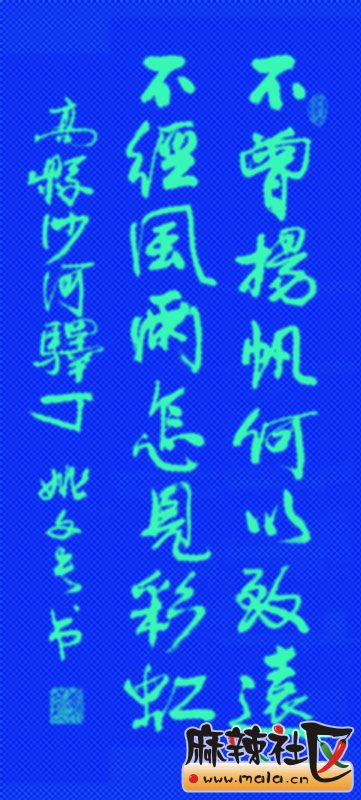 不曾揚帆何以致遠
不經風雨怎見彩虹
高縣沙河驛丁
姚文書
麻辣社区
www.mala.cn